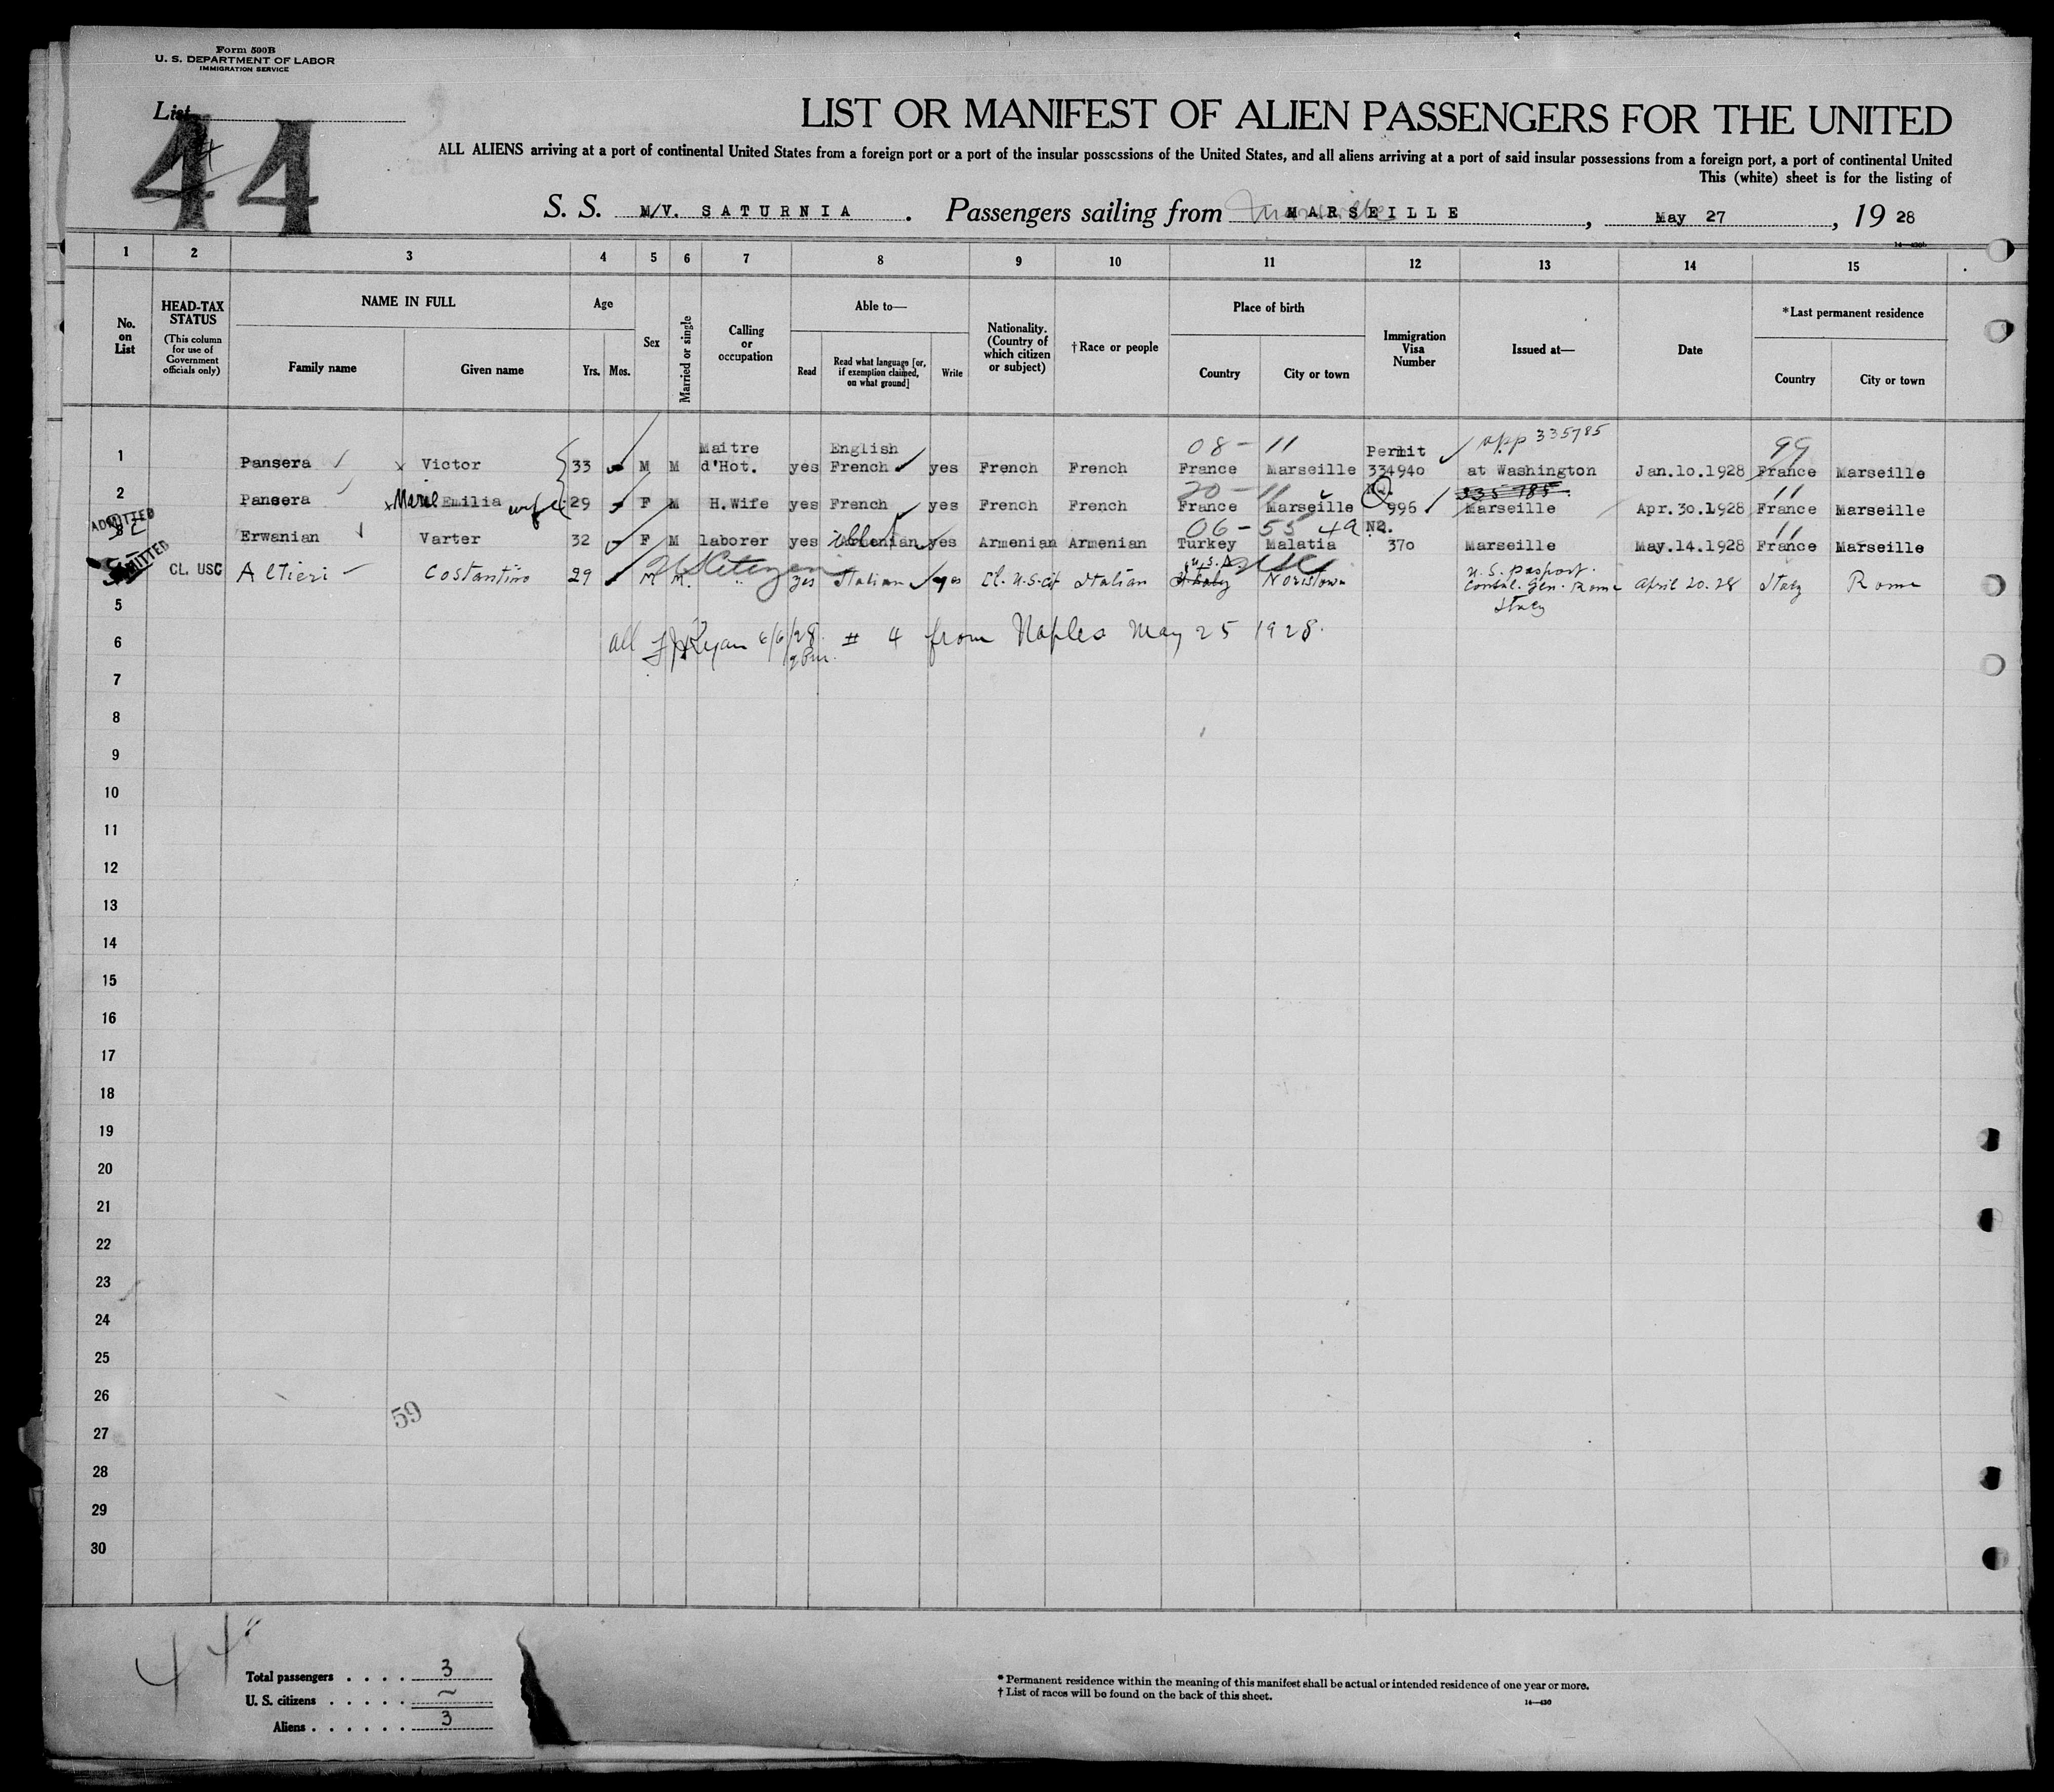 Form 500B
U. S. DEPARTMENT OF LABOR
IMMIGRATION SERVICE
List
44
LIST OR MANIFEST OF ALIEN PASSENGERS FOR THE UNITED
ALL ALIENS arriving at a port of continental United States from a foreign port or a port of the insular possessions of the United States, and all aliens arriving at a port of said insular possessions from a foreign port, a port of continental United
This (white) sheet is for the listing of
S. S. M/V. SATURNIA . Passengers sailing from MARSEILLE , May 27 , 19 28
1 2 3 4 5 6 7 8 9 10 11 12 13 14 15
No. on List
HEAD-TAX STATUS
(This column for use of Government officials only)
NAME IN FULL
Family name Given name
Age
Yrs. Mos.
Sex
Married or single
Calling or occupation
Able to—
Read
Read what language [or, if exemption claimed, on what ground]
Write
Nationality. (Country of which citizen or subject)
†Race or people
Place of birth
Country City or town
Immigration Visa Number
Issued at—
Date
*Last permanent residence
Country City or town
Maitre English 08 - 11 Permit app 335785 99
1 Pansera x Victor 33 M M d'Hot. yes French yes French French France Marseille 334940 at Washington Jan.10.1928 France Marseille
20 - 11 No. 335 785 11
2 Pansera x Marie Emilia wife 29 F M H.Wife yes French yes French French France Marseille 996 Marseille Apr.30.1928 France Marseille
ADMITTED 06 - 55 49 No. 11
Erwanian Varter 32 F M laborer yes Armenian yes Armenian Armenian Turkey Malatia 370 Marseille May.14.1928 France Marseille
ADMITTED US Citizen U.S.A USC U.S. Passport.
CL. USC Altieri Costantino 29 M M. " yes Italian yes Cl. U.S. cit Italian Italy Noristown Consul. Gen. Rome April 20.28 Italy Rome
Italy
5
6 all FJRyan 6/6/28 # 4 from Naples May 25 1928.
7
8
9
10
11
12
13
14
15
16
17
18
19
20
21
22
23
24
25
26
59
27
28
29
30
44
Total passengers . . . . 3
U. S. citizens . . . . . ~
Aliens . . . . . . 3
* Permanent residence within the meaning of this manifest shall be actual or intended residence of one year or more.
† List of races will be found on the back of this sheet.
14—430